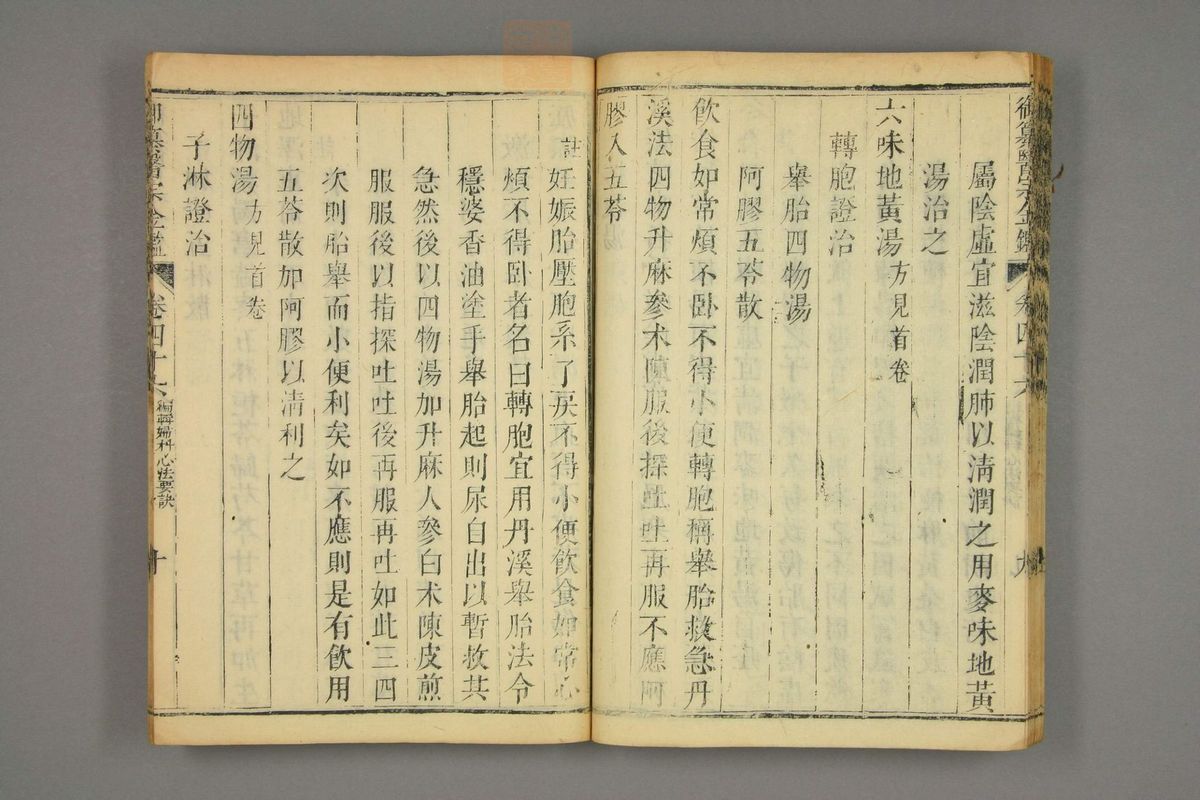 御纂醫宗金鑑 卷四十六 九
屬陰虛宜滋陰潤肺以清潤之用麥味地黃
湯治之
六味地黃湯方見首卷
轉胞證治
舉胎四物湯
阿膠五苓散
飲食如常煩不卧不得小便轉胞稱舉胎救急丹
溪法四物升麻參朮陳服後探吐吐再服不應阿
膠入五苓
註妊娠胎壓胞系了戾不得小便飲食如常心
煩不得卧者名曰轉胞宜用丹溪舉胎法令
穩婆香油塗手舉胎起則尿自出以暫救其
急然後以四物湯加升麻人參白朮陳皮煎
服服後以指探吐吐後再服再吐如此三四
次則胎舉而小便利矣如不應則是有飲用
五苓散加阿膠以清利之
四物湯方見首卷
子淋證治
御纂醫宗金鑑 卷四十六 編輯婦科心法要訣 十